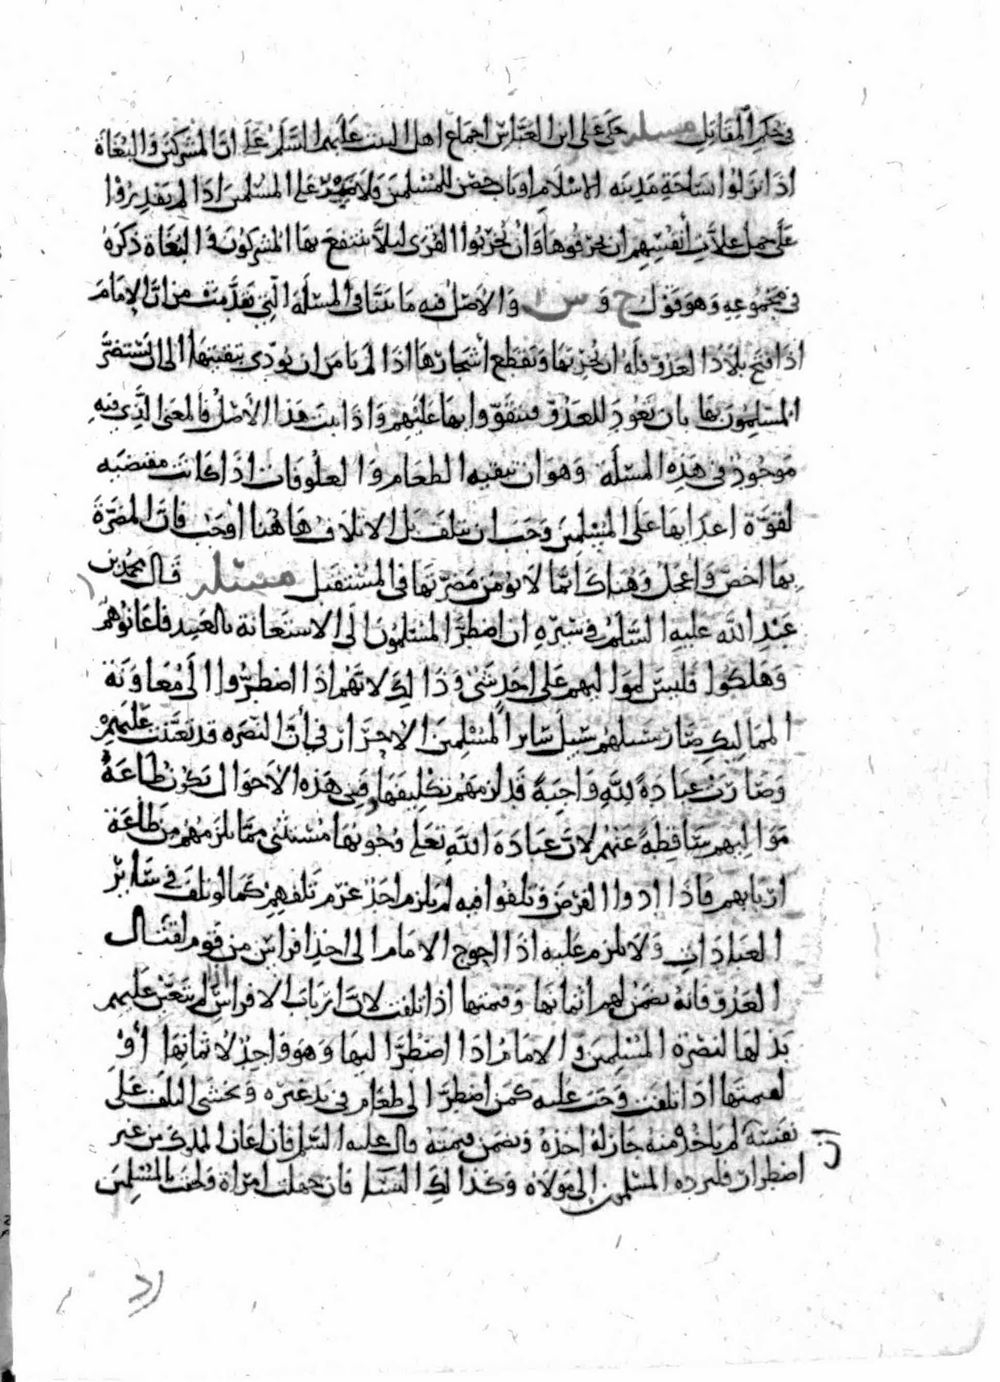 في حكم المقاتل مسله حكى على ابن العباس اجماع اهل البيت عليهم السلم على ان المشركين والبغاة
اذا نزلوا ساحة مدينه الاسلام او باب حصن للمسلمين ولا على المسلمين اذا لم يقدروا
على حمل غلات انفسهم ان يحرقوها وان يخربوا القرى ليلا ينتفع بها المشركون والبغاة ذكره
في مجموعه وهو قول ح و س والاصل فيه ما بينا في المسله التي تقدمت من ان الامام
اذا فتح بلاد العدو فله ان يخربها ويقطع اشجارها اذا لم يامن ان يودي تبقيتها الى ان يستضر
المسلمون بها بان تعود للعدو فيتقووا بها عليهم واذا ثبت هذا الاصل فالمعنى الذي فيه
موجود في هذه المسله وهو ان تبقيه الطعام والعلوفات اذا كانت مقتضيه
لقوة اعدايها على المسلمين وجب ان يتلف بل الاتلاف هاهنا اوجب فان المضرة
بها اخص واعجل وهناك انما لا يومن مضرتها في المستقبل مسله قال محمد بن
عبد الله عليه السلم في سيره ان اضطر المسلمون الى الاستعانة بالعبيد فاعانوهم
وهلكوا فليس لمواليهم على احد شي وذلك لانهم اذا اضطروا الى معاونة
المماليك صار سبيلهم سبيل ساير المسلمين الاحرار في ان النصره قد تعينت عليهم
وصارت عبادة لله واجبة قد لزمهم تكليفها وفي هذه الاحوال تكون طاعة
مواليهم ساقطة عنهم لان عبادة الله تعلى وجوبها مستثنى مما يلزمهم من طاعة
اربابهم فاذا ادوا الفرض وتلفوا فيه لم يلزم احد غرم تلفهم كما لو تلف في ساير
العبادات ولا يلزم عليه اذا احوج الامام الى اخذ افراس من قوم لقتال
العدو فانه يضمن لهم اثمانها وقيمتها اذا تلفت لان ارباب الافراس لم يتعين عليهم
بذلها لنصره المسلمين والامام اذا اضطر اليها وهو واجد لاثمانها او
لقيمتها اذا تلفت وجب عليه كمن اضطر الى طعام في يد غيره ويخشى التلف على
نفسه ان لم ياخذ منه جاز له اخذه ويضمن قيمته قال عليه السلم فان اعان المملوك من غير
اضطرار فليرده المسلمون الى مولاه وكذلك النسا فان حملت امراة ولحقت بالمسلمين